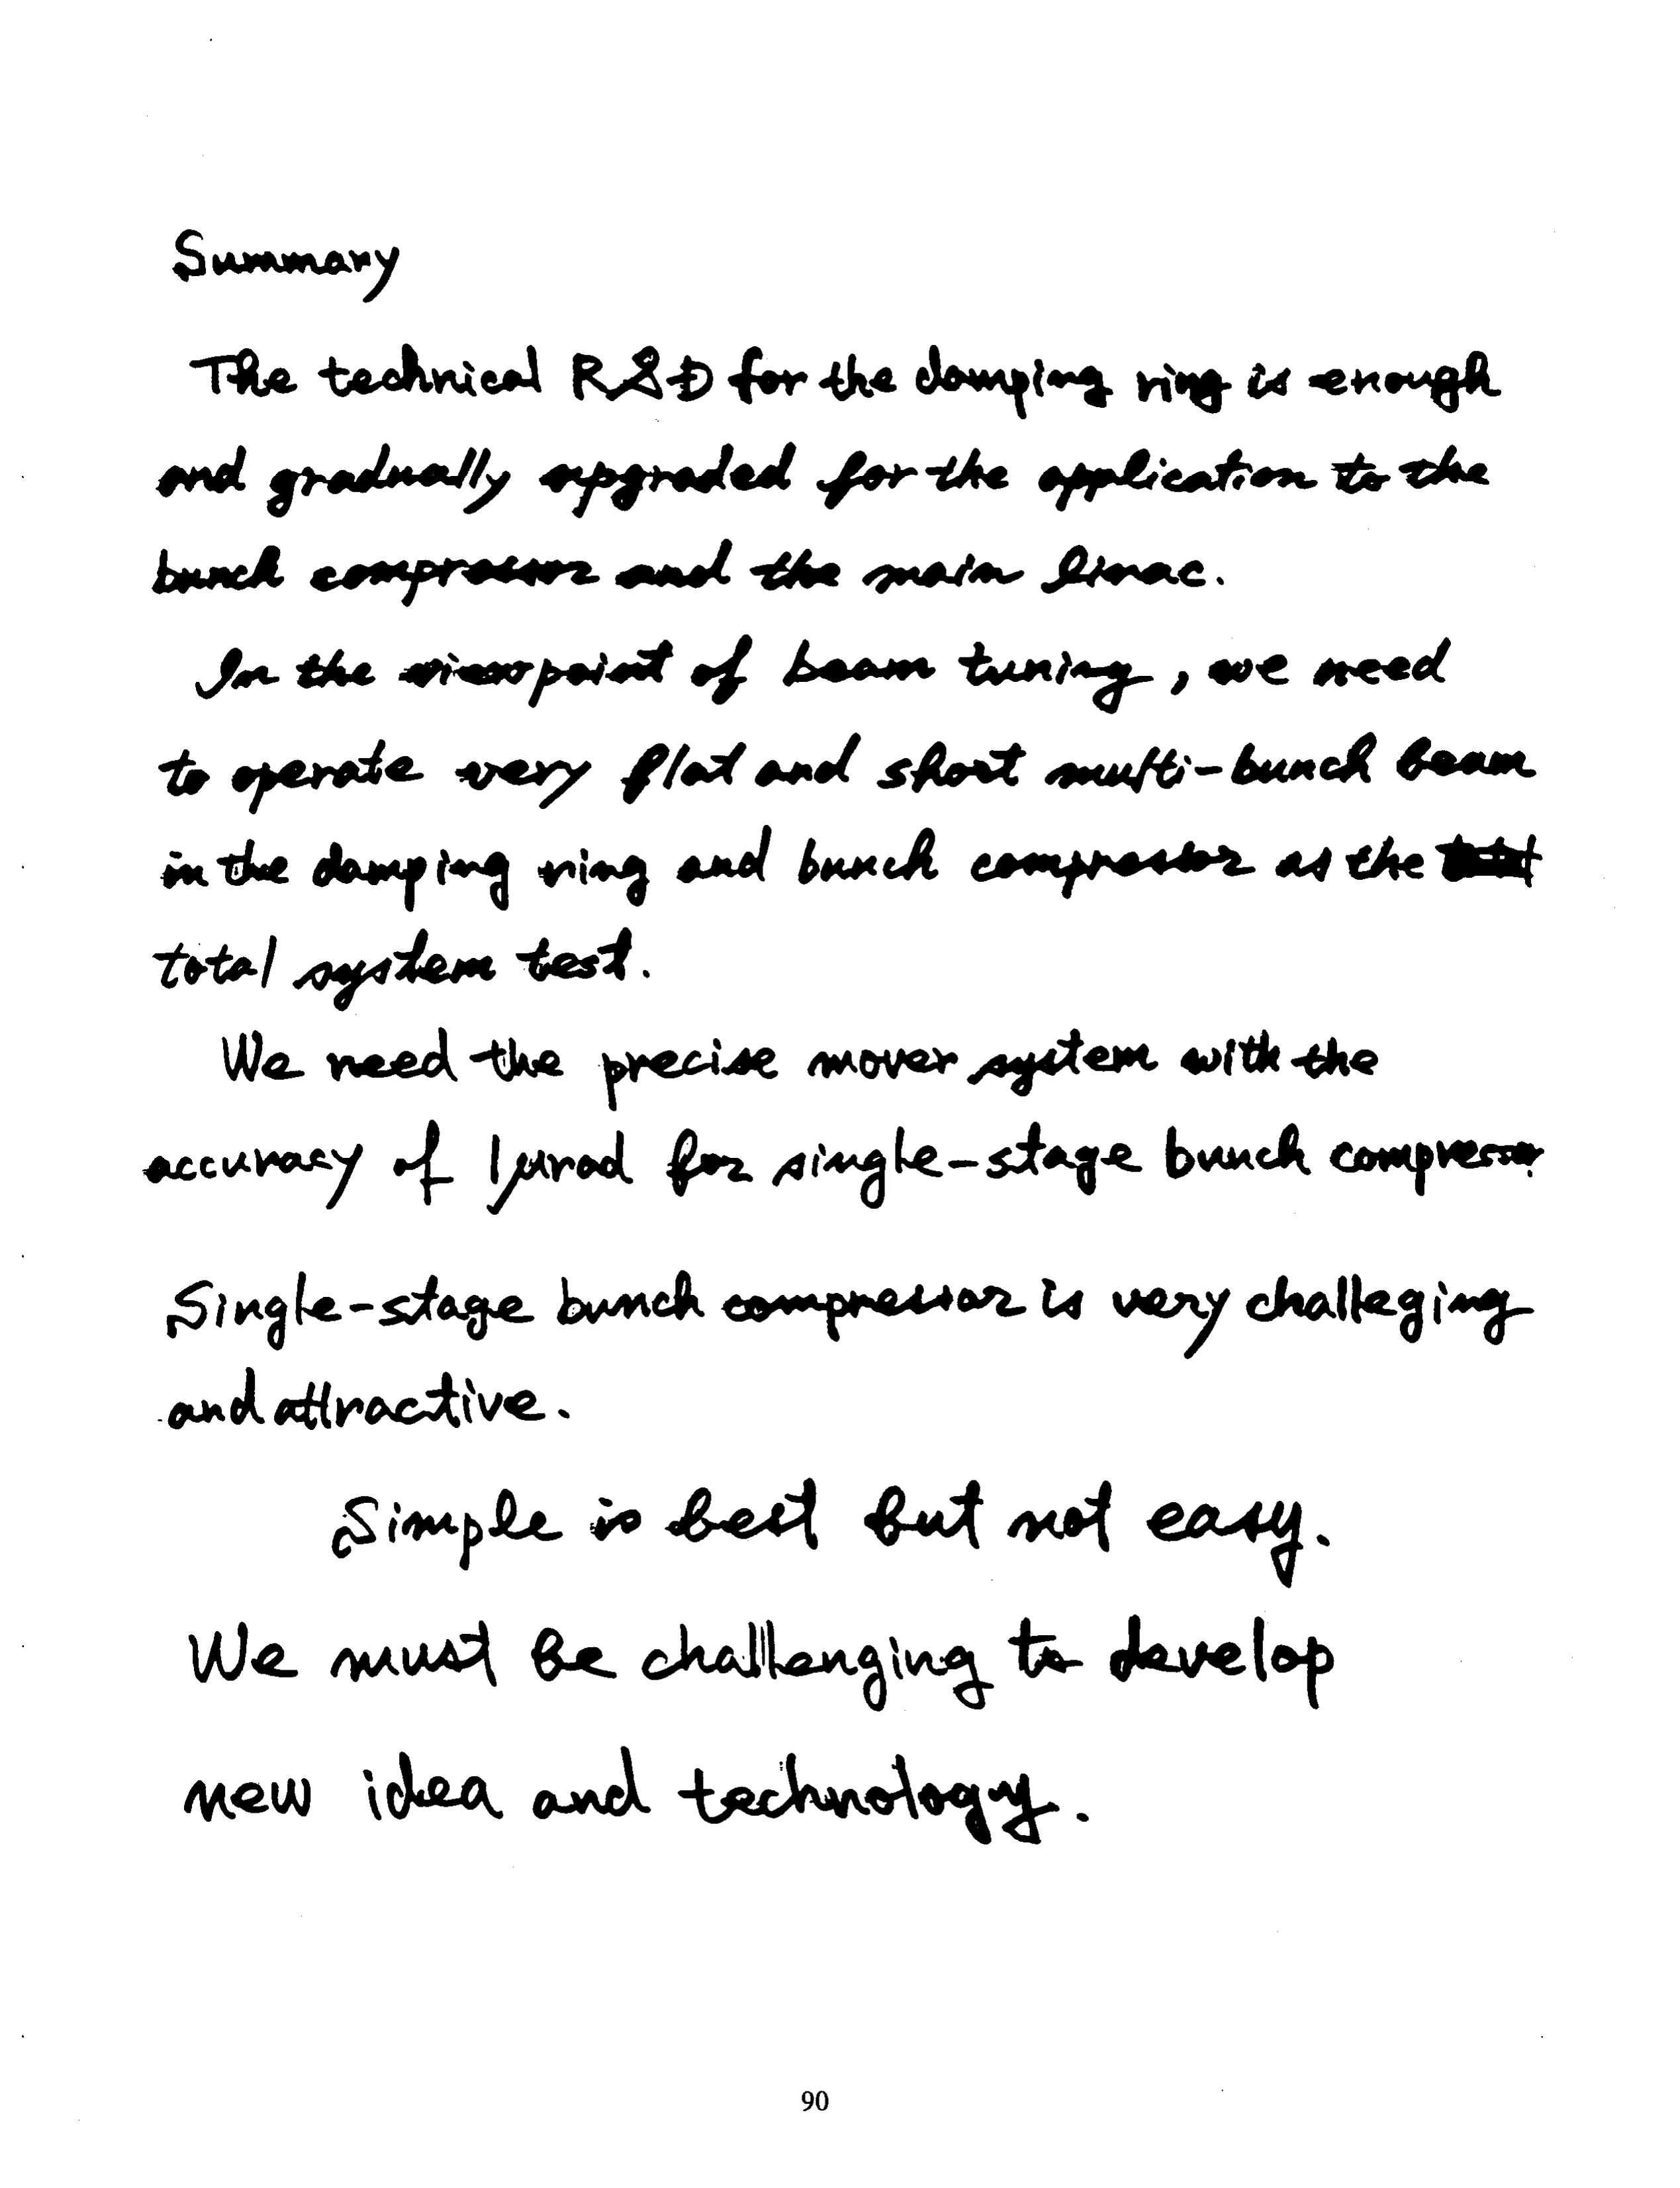 Summary
The technical R&D for the damping ring is enough
and gradually upgraded for the application to the
bunch compressor and the main linac.
In the viewpoint of beam tuning, we need
to operate very flat and short multi-bunch beam
in the damping ring and bunch compressor as the
total system test.
We need the precise mover system with the
accuracy of 1μrad for single-stage bunch compressor
Single-stage bunch compressor is very challeging
and attractive.
Simple is best but not easy.
We must be challenging to develop
new idea and technology.
90